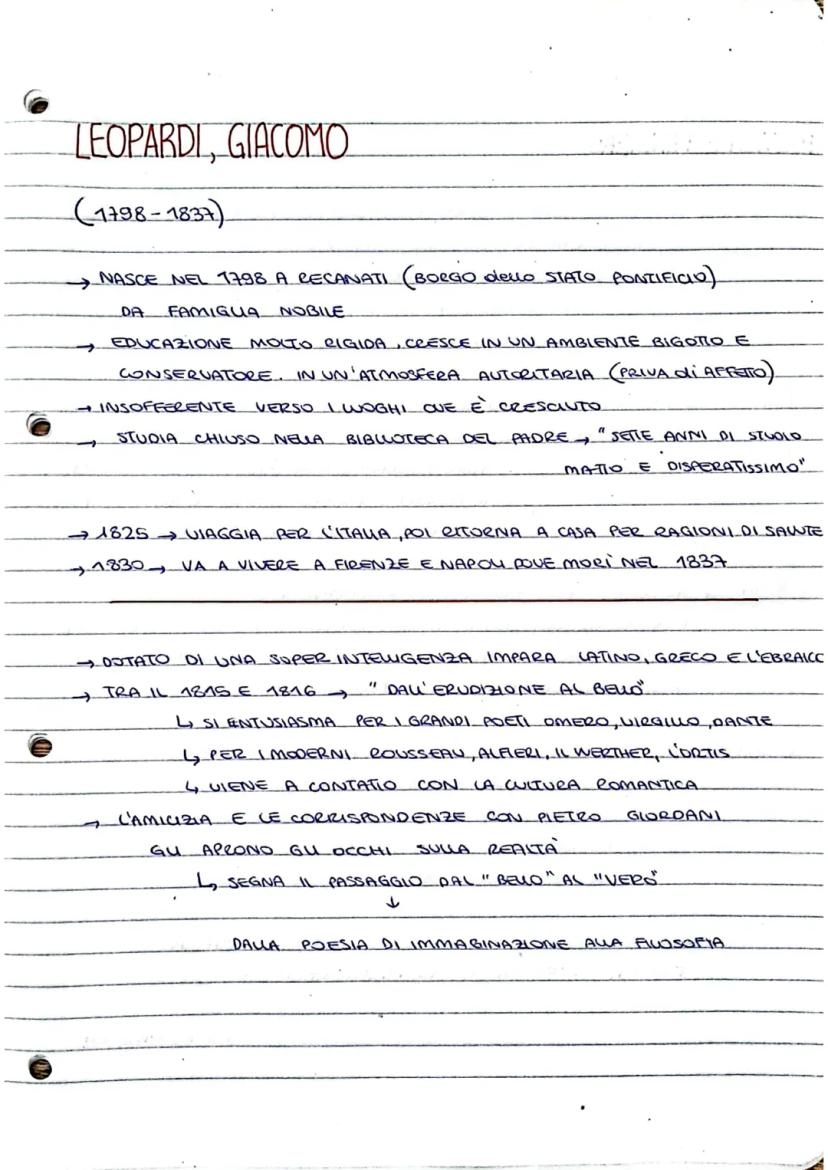 LEOPARDI, GIACOMO
(1798-1837)
→ NASCE NEL 1798 A RECANATI (BORGO dello STATO PONTIFICIO)
DA FAMIGLIA NOBILE
→ EDUCAZIONE MOLTO RIGIDA, CRESCE IN UN AMBIENTE BIGOTTO E
CONSERVATORE. IN UN'ATMOSFERA AUTORITARIA (PRIVA di AFFETTO)
→ INSOFFERENTE VERSO I LUOGHI OVE È CRESCIUTO
→ STUDIA CHIUSO NELLA BIBLIOTECA DEL PADRE → "SETTE ANNI DI STUDIO
MATTO E DISPERATISSIMO"
→ 1825 → VIAGGIA PER L'ITALIA, POI RITORNA A CASA PER RAGIONI DI SALUTE
→ 1830 → VA A VIVERE A FIRENZE E NAPOLI DOVE MORÌ NEL 1837
→ DOTATO DI UNA SUPER INTELLIGENZA IMPARA LATINO, GRECO E L'EBRAICO
→ TRA IL 1815 E 1816 → "DALL'ERUDIZIONE AL BELLO"
↳ SI ENTUSIASMA PER I GRANDI POETI OMERO, VIRGILIO, DANTE
↳ PER I MODERNI ROUSSEAU, ALFIERI, IL WERTHER, L'ORTIS
↳ VIENE A CONTATTO CON LA CULTURA ROMANTICA
→ L'AMICIZIA E LE CORRISPONDENZE CON PIETRO GIORDANI
GLI APRONO GLI OCCHI SULLA REALTÀ
↳ SEGNA IL PASSAGGIO DAL "BELLO" AL "VERO"
↓
DALLA POESIA DI IMMAGINAZIONE ALLA FILOSOFIA